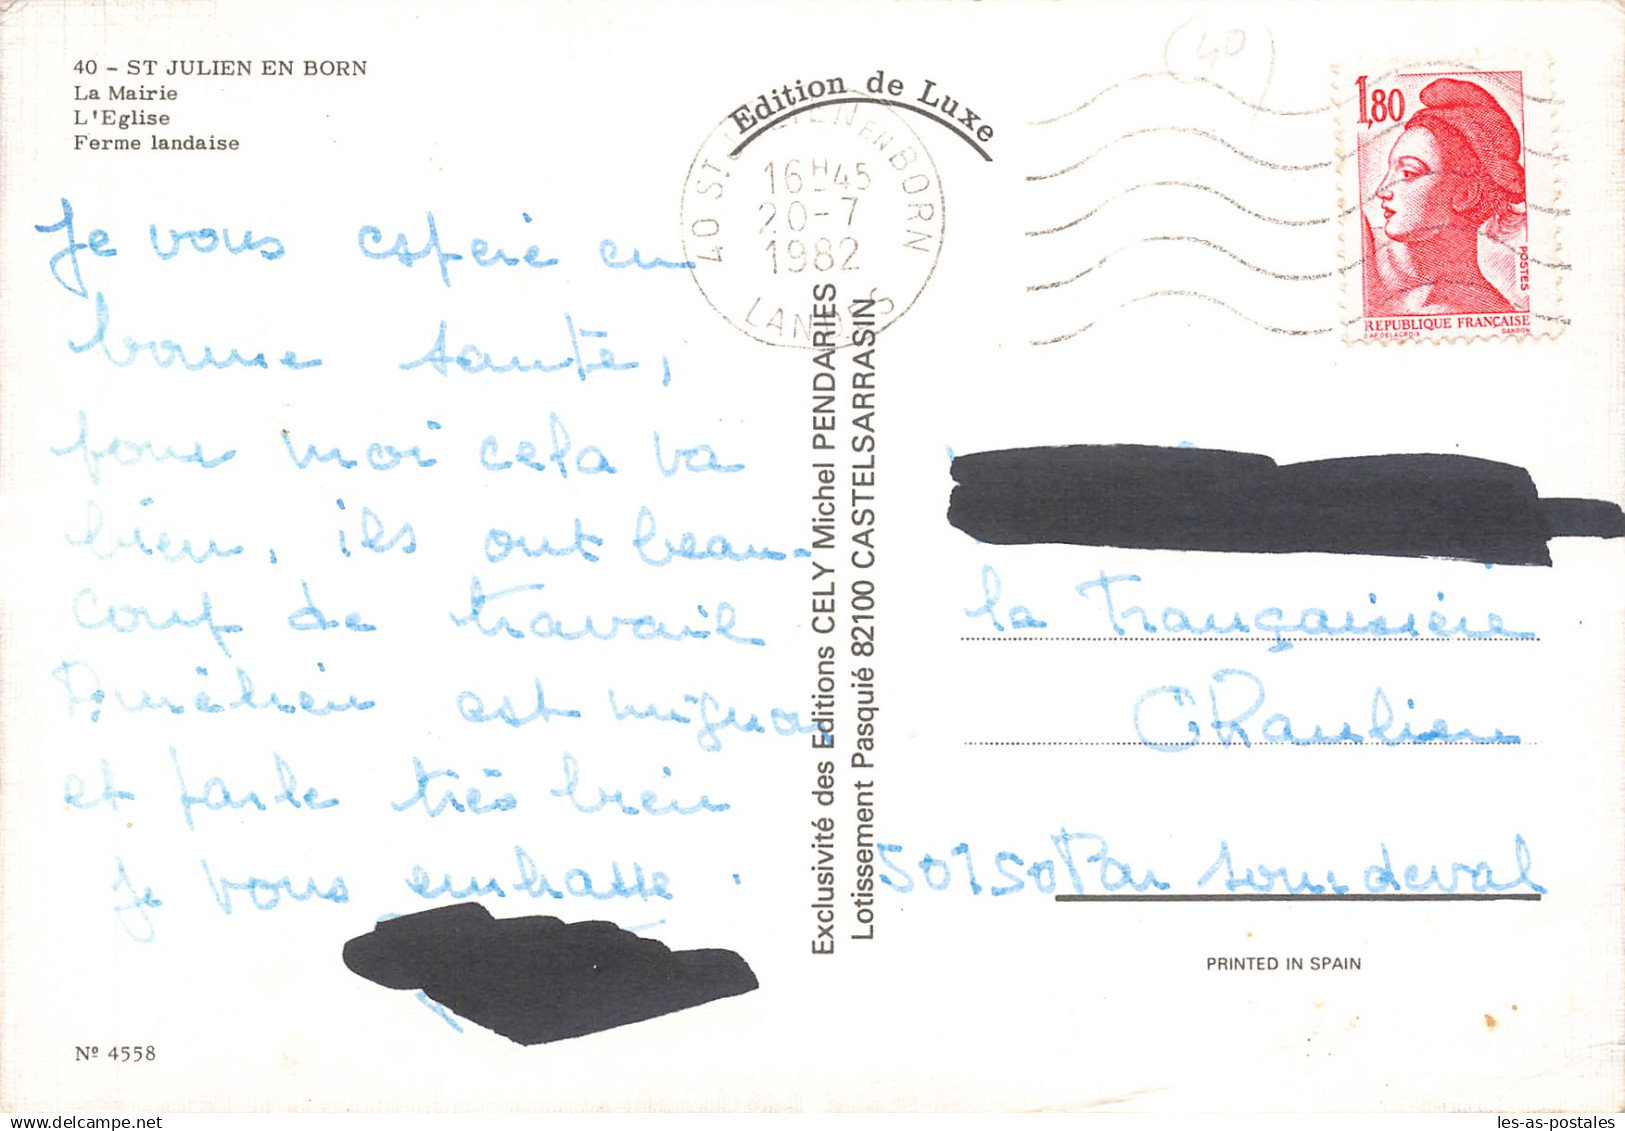 40 - ST JULIEN EN BORN
La Mairie
L'Eglise
Ferme landaise
Je vous espère en
bonne santé,
pour moi cela va
bien, ils ont beau-
coup de travail
Aurélien est mignon
et parle très bien
Je vous embrasse.
Nº 4558
Edition de Luxe
40 ST JULIEN EN BORN
16H45
20-7
1982
LANDES
Exclusivité des Editions CELY Michel PENDARIES
Lotissement Pasquié 82100 CASTELSARRASIN
40
1,80
POSTES
REPUBLIQUE FRANÇAISE
D'AP. DELACROIX GANDON
la Françaisière
Chaulieu
50150 Par Sourdeval
PRINTED IN SPAIN
les-as-postales